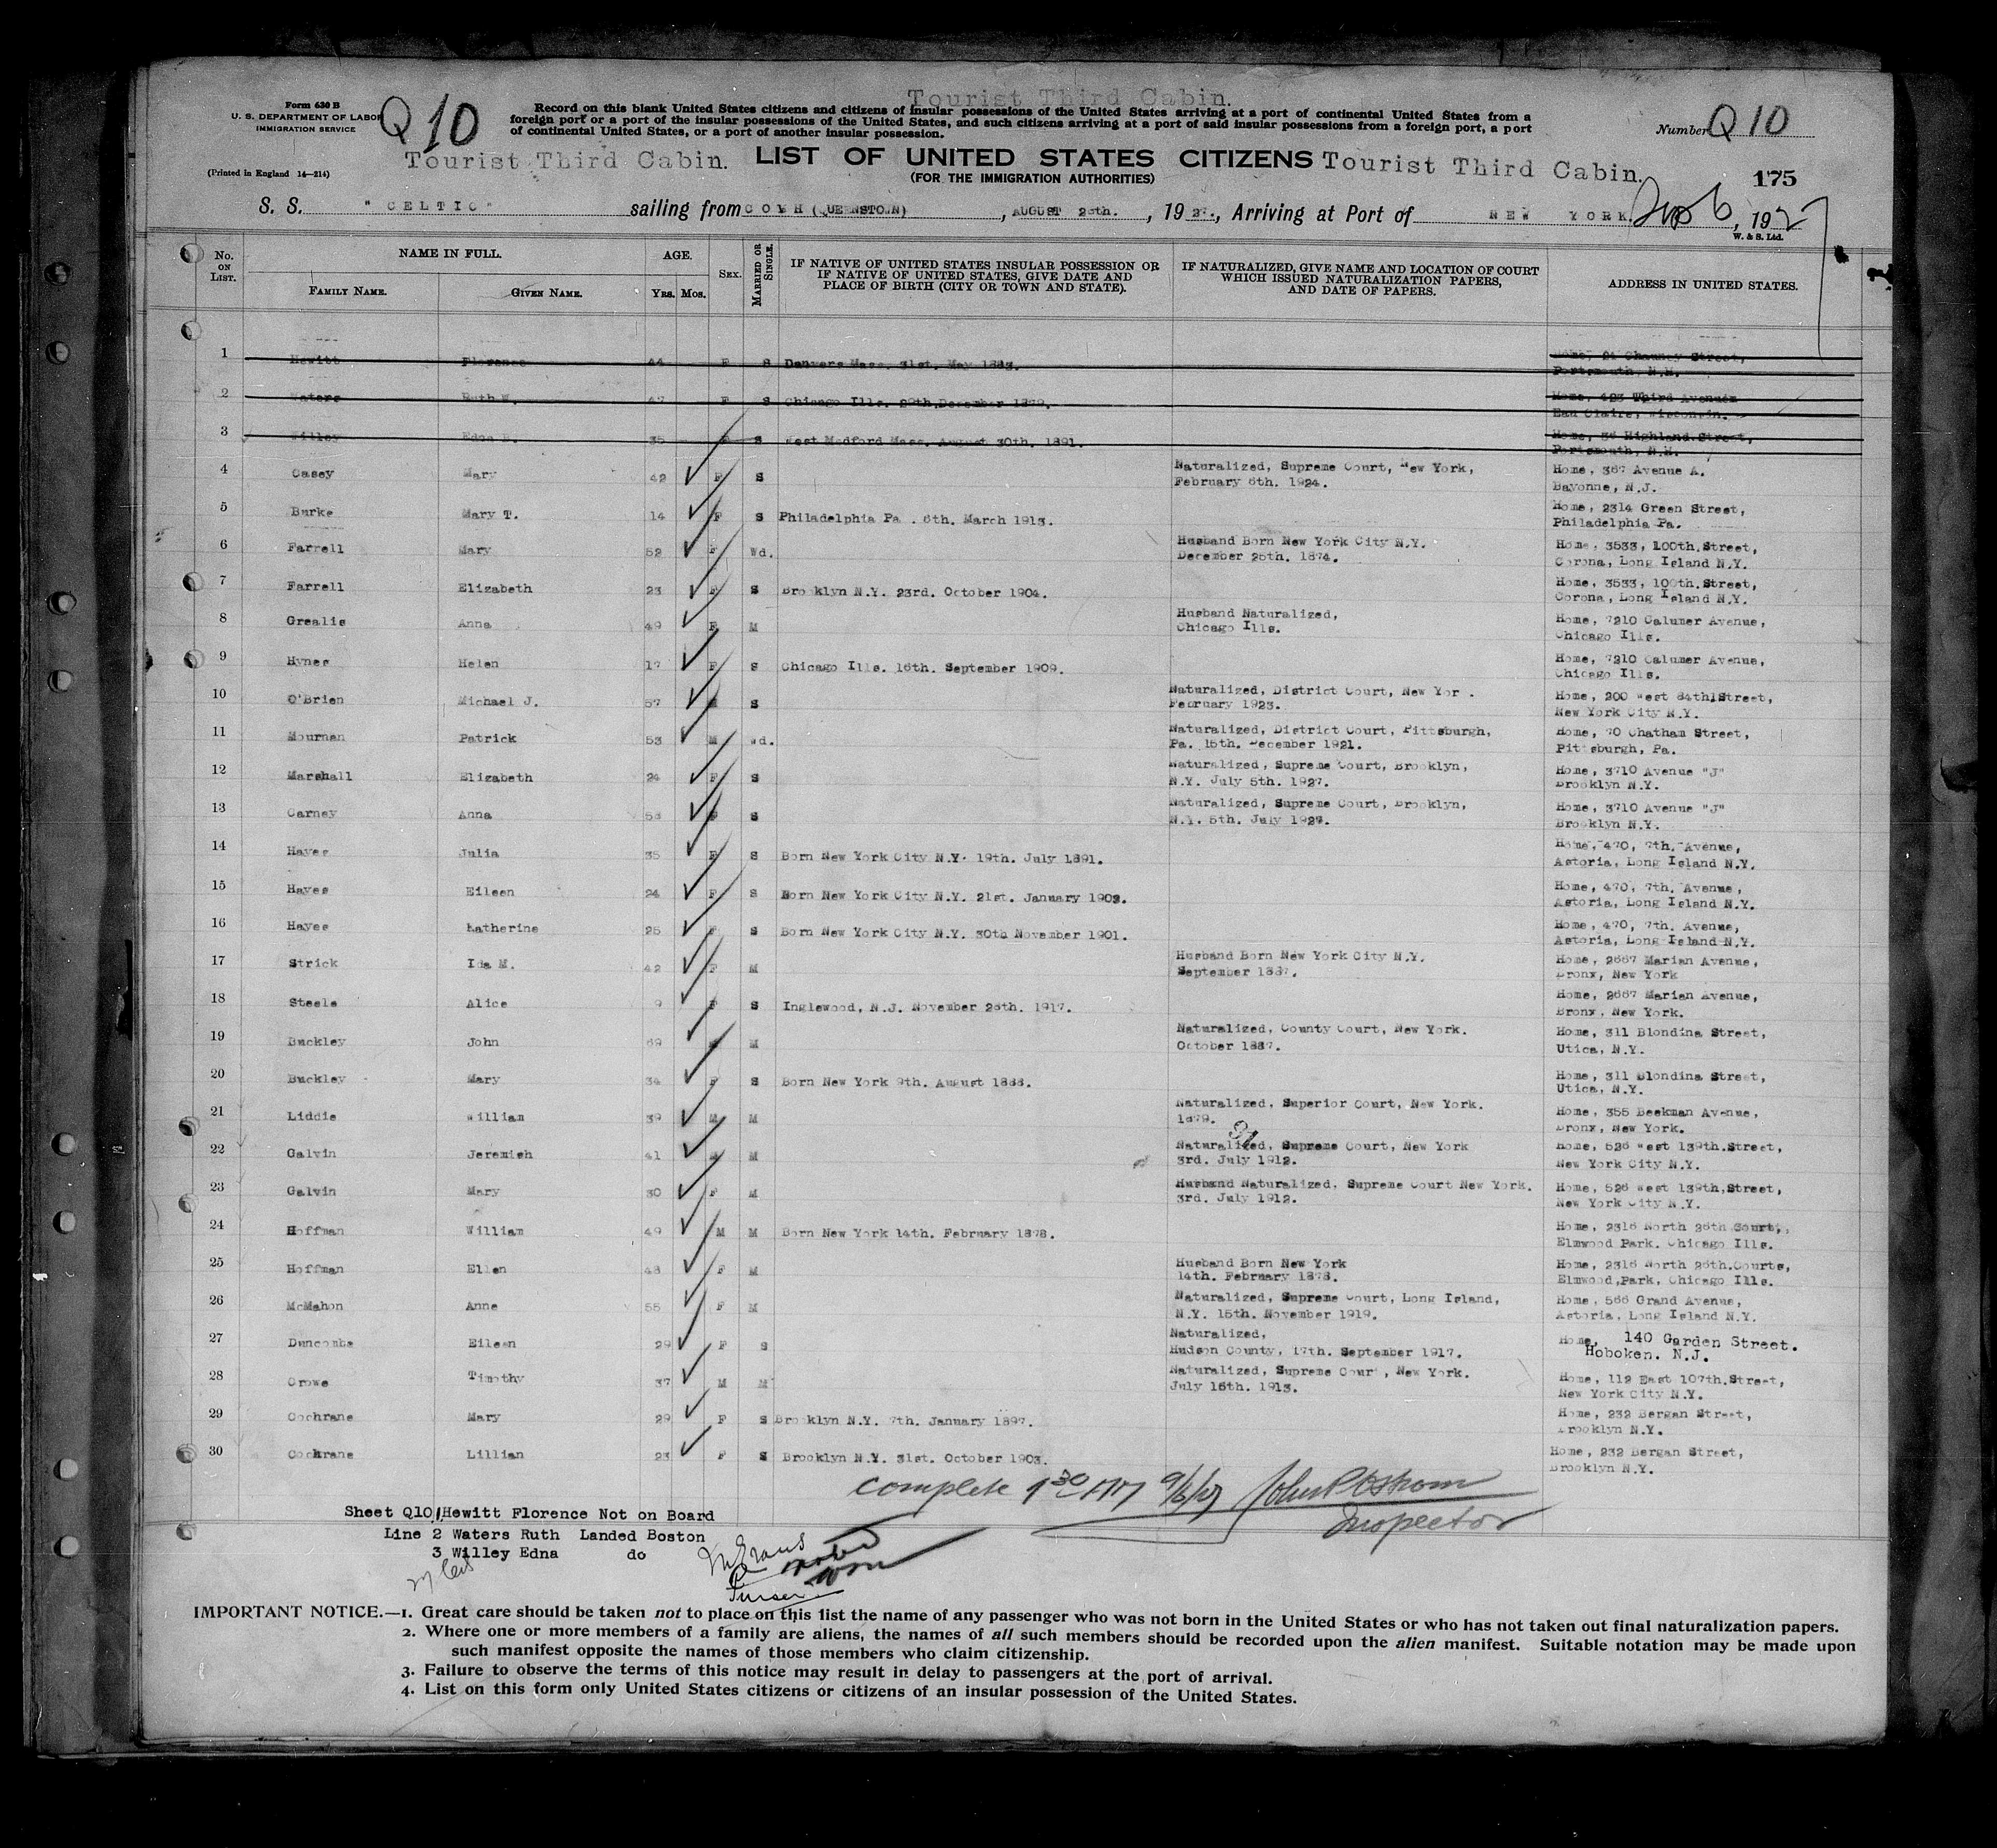 Tourist Third Cabin.
Form 630 B
U. S. DEPARTMENT OF LABOR
IMMIGRATION SERVICE
(Printed in England 14—214)
Q 10
Record on this blank United States citizens and citizens of insular possessions of the United States arriving at a port of continental United States from a
foreign port or a port of the insular possessions of the United States, and such citizens arriving at a port of said insular possessions from a foreign port, a port
of continental United States, or a port of another insular possession.
Number Q 10
Tourist Third Cabin. LIST OF UNITED STATES CITIZENS Tourist Third Cabin.
(FOR THE IMMIGRATION AUTHORITIES)
175
S. S. "CELTIC" sailing from COVH (QUEENSTOWN), AUGUST 28th., 1927., Arriving at Port of NEW YORK. Sep 6, 1927
W. & S. Ltd.
No. ON LIST. NAME IN FULL. AGE. SEX. MARRIED OR SINGLE. IF NATIVE OF UNITED STATES INSULAR POSSESSION OR IF NATIVE OF UNITED STATES, GIVE DATE AND PLACE OF BIRTH (CITY OR TOWN AND STATE). IF NATURALIZED, GIVE NAME AND LOCATION OF COURT WHICH ISSUED NATURALIZATION PAPERS, AND DATE OF PAPERS. ADDRESS IN UNITED STATES.
FAMILY NAME. GIVEN NAME. YRS. MOS.
1 Hewitt Florence 44 F S Danvers Mass. 31st. May 1883. Home, 21 Chauncy Street,
Portsmouth, N.H.
2 Waters Ruth M. 47 F S Chicago Ills. 29th. December 1879. Home, 423 Third Avenue
Eau Claire, Wisconsin.
3 Willey Edna 35 S West Medford Mass. August 30th. 1891. Home, Highland Street,
Portsmouth, N.H.
4 Casey Mary 42 F S Naturalized, Supreme Court, New York, Home, 367 Avenue A.
February 6th. 1924. Bayonne, N.J.
5 Burke Mary T. 14 F S Philadelphia Pa. 6th. March 1913. Home, 2314 Green Street,
Philadelphia Pa.
6 Farrell Mary 52 F Wd. Husband Born New York City N.Y. Home, 3533, 100th.Street,
December 25th. 1874. Corona, Long Island N.Y.
7 Farrell Elizabeth 23 F S Brooklyn N.Y. 23rd. October 1904. Home, 3533, 100th.Street,
Corona, Long Island N.Y.
8 Grealis Anna 49 F M Husband Naturalized, Home, 7210 Calumer Avenue,
Chicago Ills. Chicago Ills.
9 Hynes Helen 17 F S Chicago Ills. 16th. September 1909. Home, 7210 Calumer Avenue,
Chicago Ills.
10 O'Brien Michael J. 57 M S Naturalized, District Court, New Yor . Home, 200 West 84th.Street,
February 1923. New York City N.Y.
11 Mournan Patrick 53 M Wd. Naturalized, District Court, Pittsburgh, Home, 70 Chatham Street,
Pa. 15th. December 1921. Pittsburgh, Pa.
12 Marshall Elizabeth 24 F S Naturalized, Supreme Court, Brooklyn, Home, 3710 Avenue "J"
N.Y. July 5th. 1927. Brooklyn N.Y.
13 Carney Anna F S Naturalized, Supreme Court, Brooklyn, Home, 3710 Avenue "J"
N.Y. 5th. July 1927. Brooklyn N.Y.
14 Hayes Julia 35 F S Born New York City N.Y. 19th. July 1891. Home, 470, 7th. Avenue,
Astoria, Long Island N.Y.
15 Hayes Eileen 24 F S Born New York City N.Y. 21st. January 1903. Home, 470, 7th. Avenue,
Astoria, Long Island N.Y.
16 Hayes Katherine 25 F S Born New York City N.Y. 30th November 1901. Home, 470, 7th. Avenue,
Astoria, Long Island N.Y.
17 Strick Ida M. 42 F M Husband Born New York City N.Y. Home, 2667 Marian Avenue,
September 1887. Bronx, New York
18 Steele Alice 9 F S Inglewood, N.J. November 26th. 1917. Home, 2667 Marian Avenue,
Bronx, New York.
19 Buckley John 69 M M Naturalized, County Court, New York. Home, 311 Blondina Street,
October 1887. Utica, N.Y.
20 Buckley Mary 34 F S Born New York 9th. August 1888. Home, 311 Blondina Street,
Utica, N.Y.
21 Liddie William 39 M M Naturalized, Superior Court, New York. Home, 355 Beekman Avenue,
1879. Bronx, New York.
22 Galvin Jeremiah 41 M M Naturalized, Supreme Court, New York Home, 526 West 139th.Street,
3rd. July 1912. New York City N.Y.
23 Galvin Mary 30 F M Husband Naturalized, Supreme Court New York. Home, 526 West 139th.Street,
3rd. July 1912. New York City N.Y.
24 Hoffman William 49 M M Born New York 14th. February 1878. Home, 2316 North 26th Court,
Elmwood Park. Chicago Ills.
25 Hoffman Ellen 48 F M Husband Born New York Home, 2316 North 26th.Courts,
14th. February 1878. Elmwood,Park, Chicago Ills.
26 McMahon Anne 55 F M Naturalized, Supreme Court, Long Island, Home, 566 Grand Avenue,
N.Y. 15th. November 1919. Astoria, Long Island N.Y.
27 Duncombe Eileen 29 F S Naturalized, Home, 140 Garden Street.
Hudson County, 17th. September 1917. Hoboken. N.J.
28 Crowe Timothy 37 M M Naturalized, Supreme Cour , New York. Home, 112 East 107th.Street,
July 16th. 1913. New York City N.Y.
29 Cochrane Mary 29 F S Brooklyn N.Y. 7th. January 1897. Home, 232 Bergan Street,
Brooklyn N.Y.
30 Cochrane Lillian 23 F S Brooklyn N.Y. 31st. October 1903. Home, 232 Bergan Street,
Brooklyn N.Y.
complete 9 30 AM 9/6/27 John P Ostrom
Inspector
Sheet Q10/Hewitt Florence Not on Board
Line 2 Waters Ruth Landed Boston
3 Willey Edna do
Purser
IMPORTANT NOTICE.—1. Great care should be taken not to place on this list the name of any passenger who was not born in the United States or who has not taken out final naturalization papers.
2. Where one or more members of a family are aliens, the names of all such members should be recorded upon the alien manifest. Suitable notation may be made upon
such manifest opposite the names of those members who claim citizenship.
3. Failure to observe the terms of this notice may result in delay to passengers at the port of arrival.
4. List on this form only United States citizens or citizens of an insular possession of the United States.